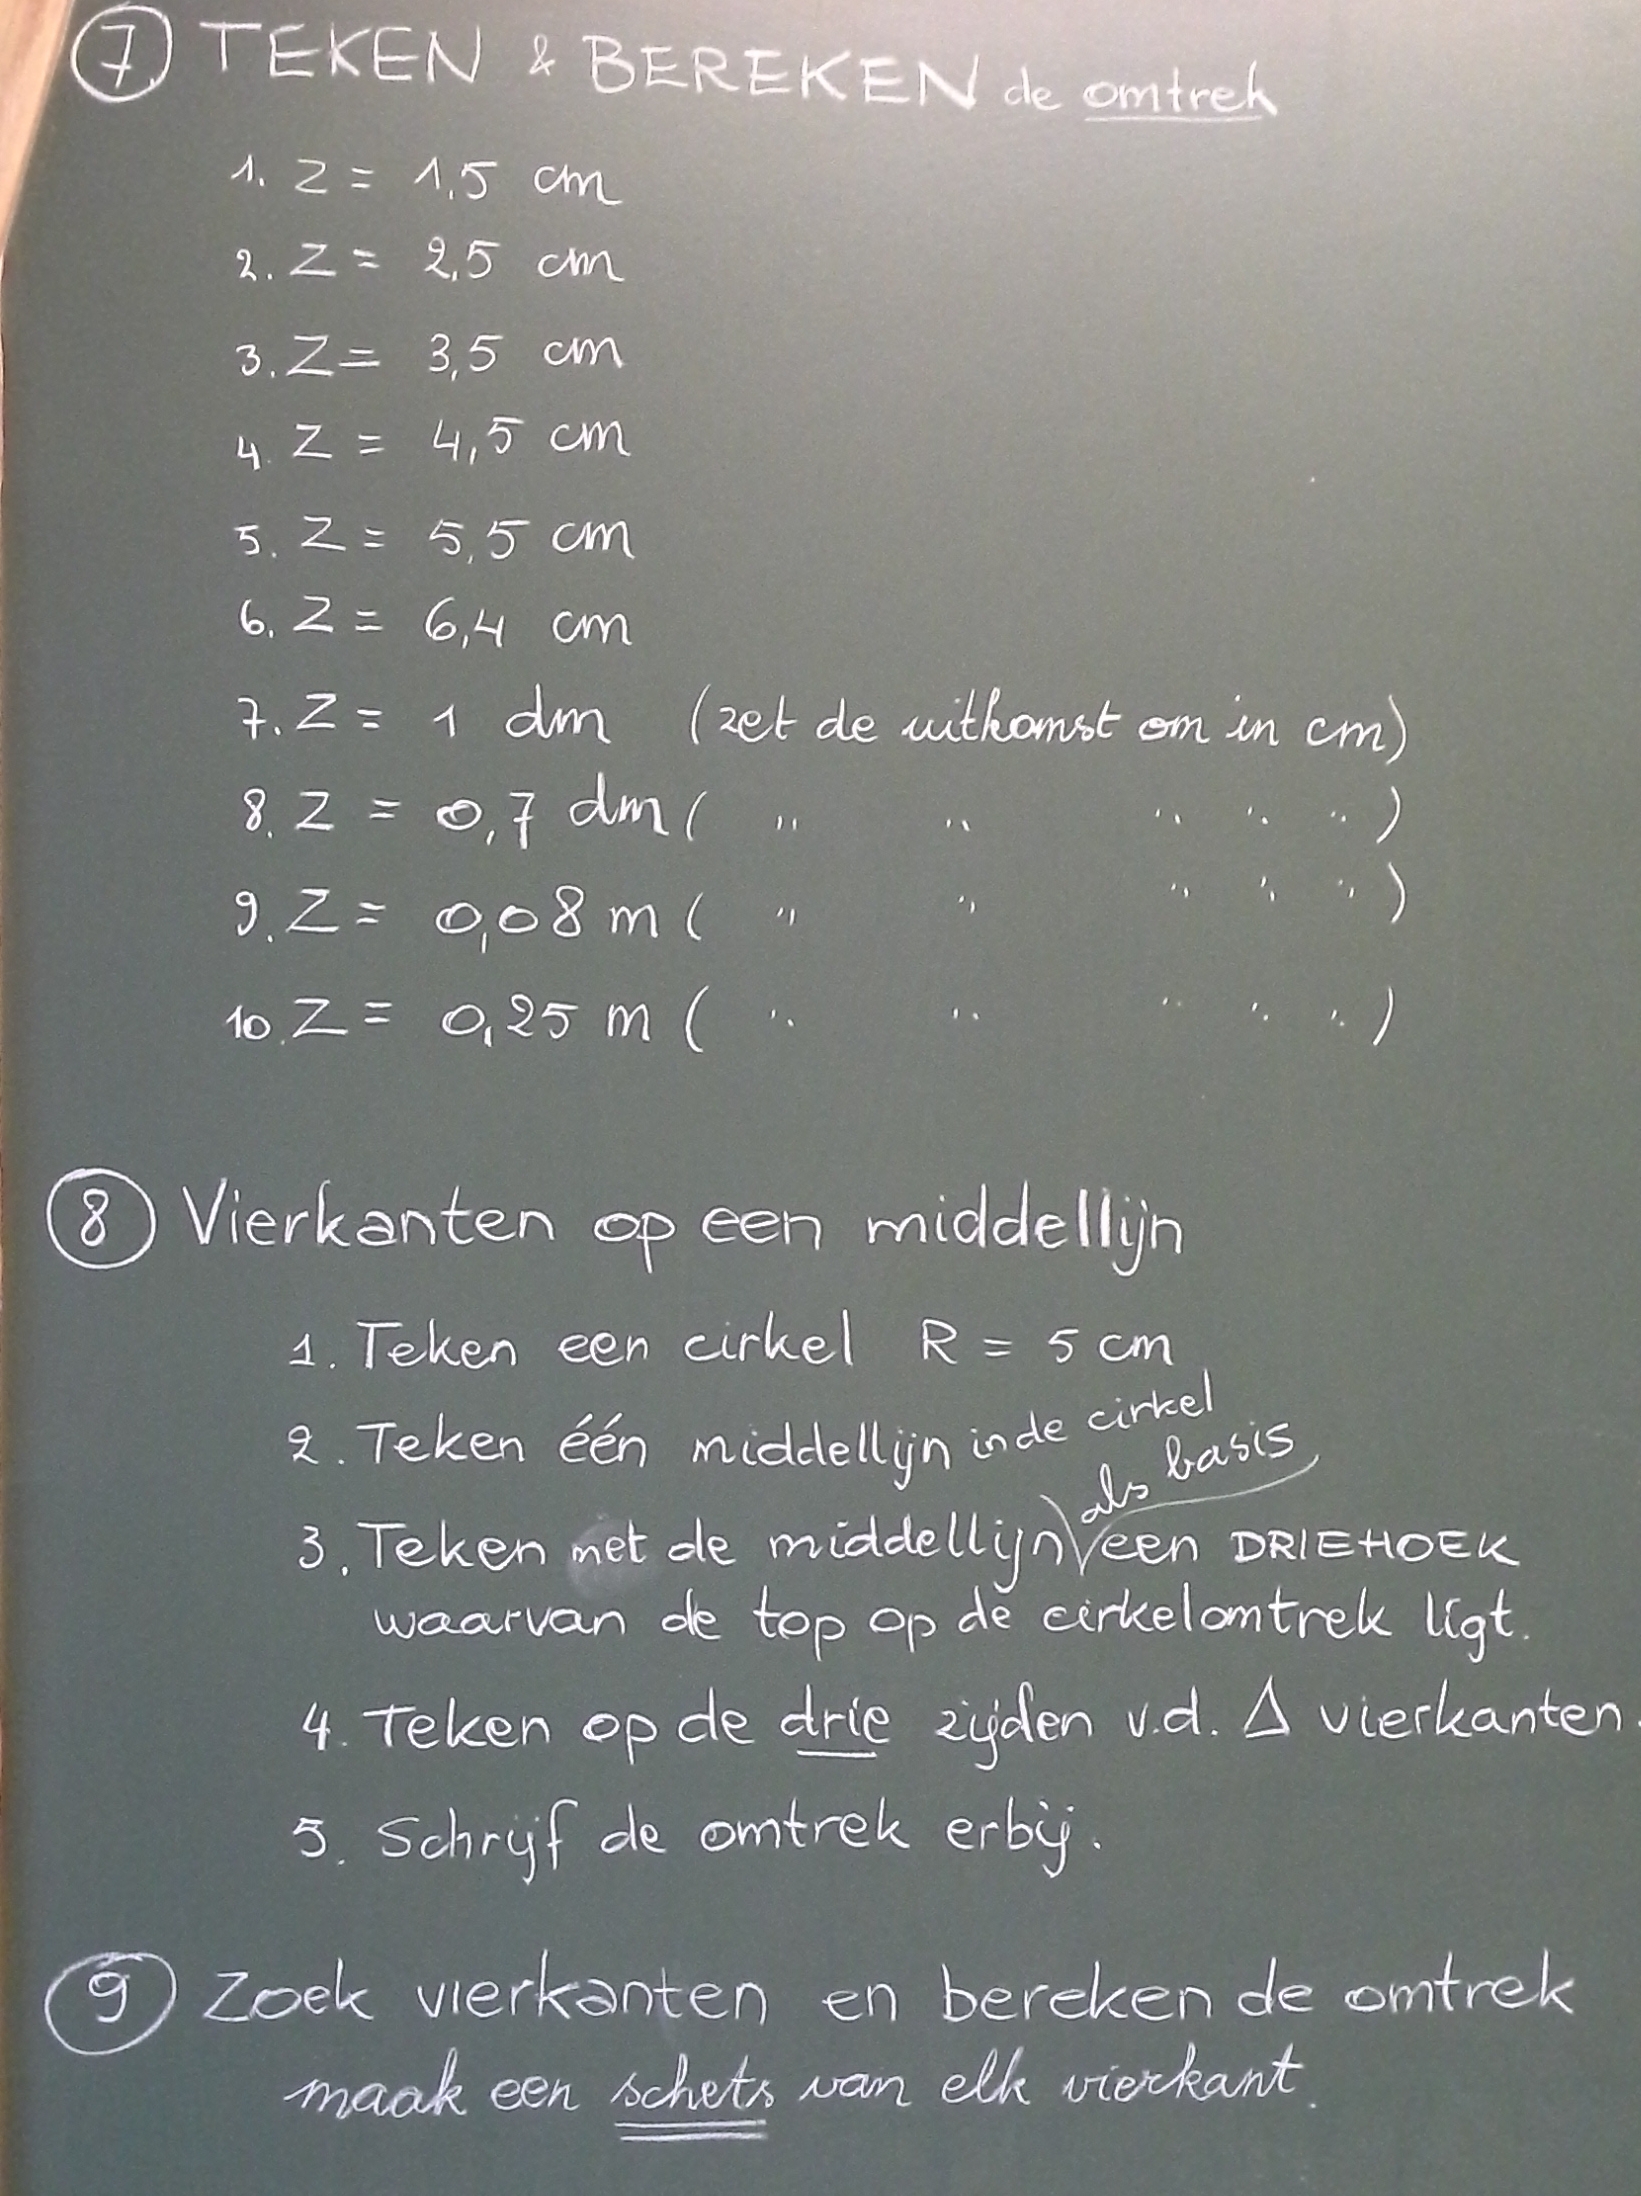 7 TEKEN & BEREKEN de omtrek
1. Z = 1,5 cm
2. Z = 2,5 cm
3. Z = 3,5 cm
4. Z = 4,5 cm
5. Z = 5,5 cm
6. Z = 6,4 cm
7. Z = 1 dm (zet de uitkomst om in cm)
8. Z = 0,7 dm ( " " " " " )
9. Z = 0,08 m ( " " " " " )
10. Z = 0,25 m ( " " " " " )
8 Vierkanten op een middellijn
1. Teken een cirkel R = 5 cm
2. Teken één middellijn in de cirkel
als basis
3. Teken met de middellijn een DRIEHOEK
waarvan de top op de cirkelomtrek ligt.
4. Teken op de drie zijden v.d. Δ vierkanten.
5. Schrijf de omtrek erbij.
9 Zoek vierkanten en bereken de omtrek
maak een schets van elk vierkant.